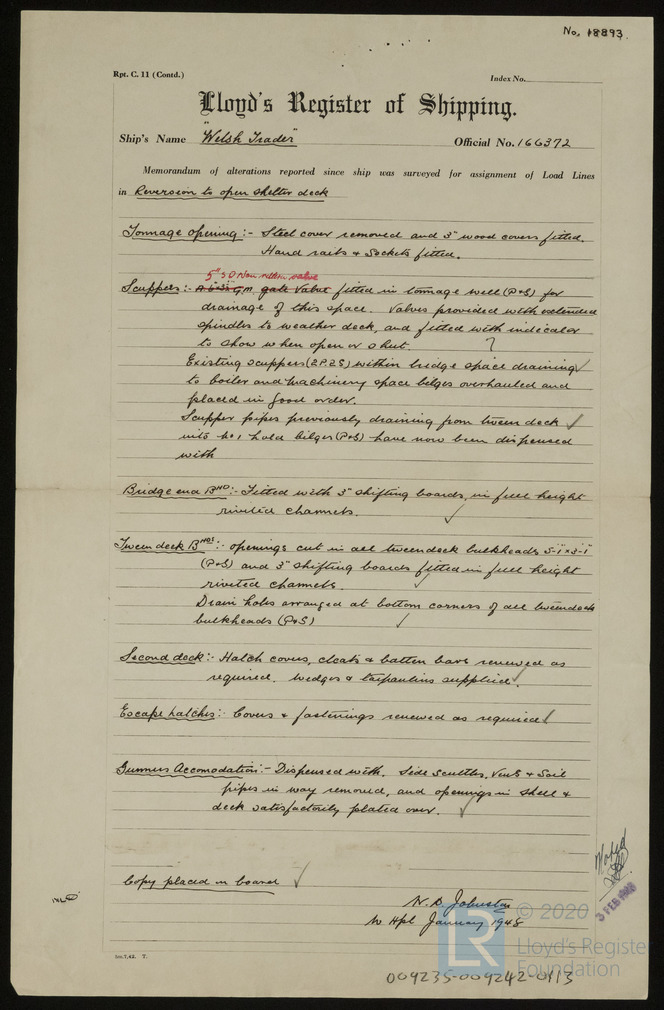 No. 18893.
Rpt. C. 11 (Contd.)
Index No.
Lloyd's Register of Shipping.
Ship's Name "Welsh Trader" Official No. 166372
Memorandum of alterations reported since ship was surveyed for assignment of Load Lines
in Reversion to open shelter deck
Tonnage opening:- Steel cover removed and 3" wood covers fitted.
Hand rails & Sockets fitted.
5" S D Non return valve
Scuppers:- G.M gate Valve fitted in tonnage well (P&S) for
drainage of this space. Valves provided with extended
spindles to weather deck, and fitted with indicator
to show when open or shut. ?
Existing scuppers (2P.2S) within bridge space draining
to boiler and machinery space bilges overhauled and
placed in good order.
Scupper pipes previously draining from tween deck
into No 1 hold bilges (P&S) have now been dispensed
with
Bridge end BHD:- Fitted with 3" shifting boards, in full height
riveted channels.
Tween deck BHDS:- openings cut in all tweendeck bulkheads 5'-1" x 3'-1"
(P&S) and 3" shifting boards fitted in full height
riveted channels.
Drain holes arranged at bottom corners of all tweendeck
bulkheads (P&S)
Second deck:- Hatch covers, cleats & batten bars renewed as
required. Wedges & tarpaulins supplied.
Escape hatches:- Covers & fastenings renewed as required
Gunners Accomodation:- Dispensed with. Side Scuttles, Vents & Soil
pipes in way removed, and openings in shell &
deck satisfactorily plated over.
Copy placed on board
Noted
3 FEB 1948
W. D. Johnston
W Hpl January 1948
Inc.7,42. T.
LR © 2020
Lloyd's Register
Foundation
009235-009242-0113